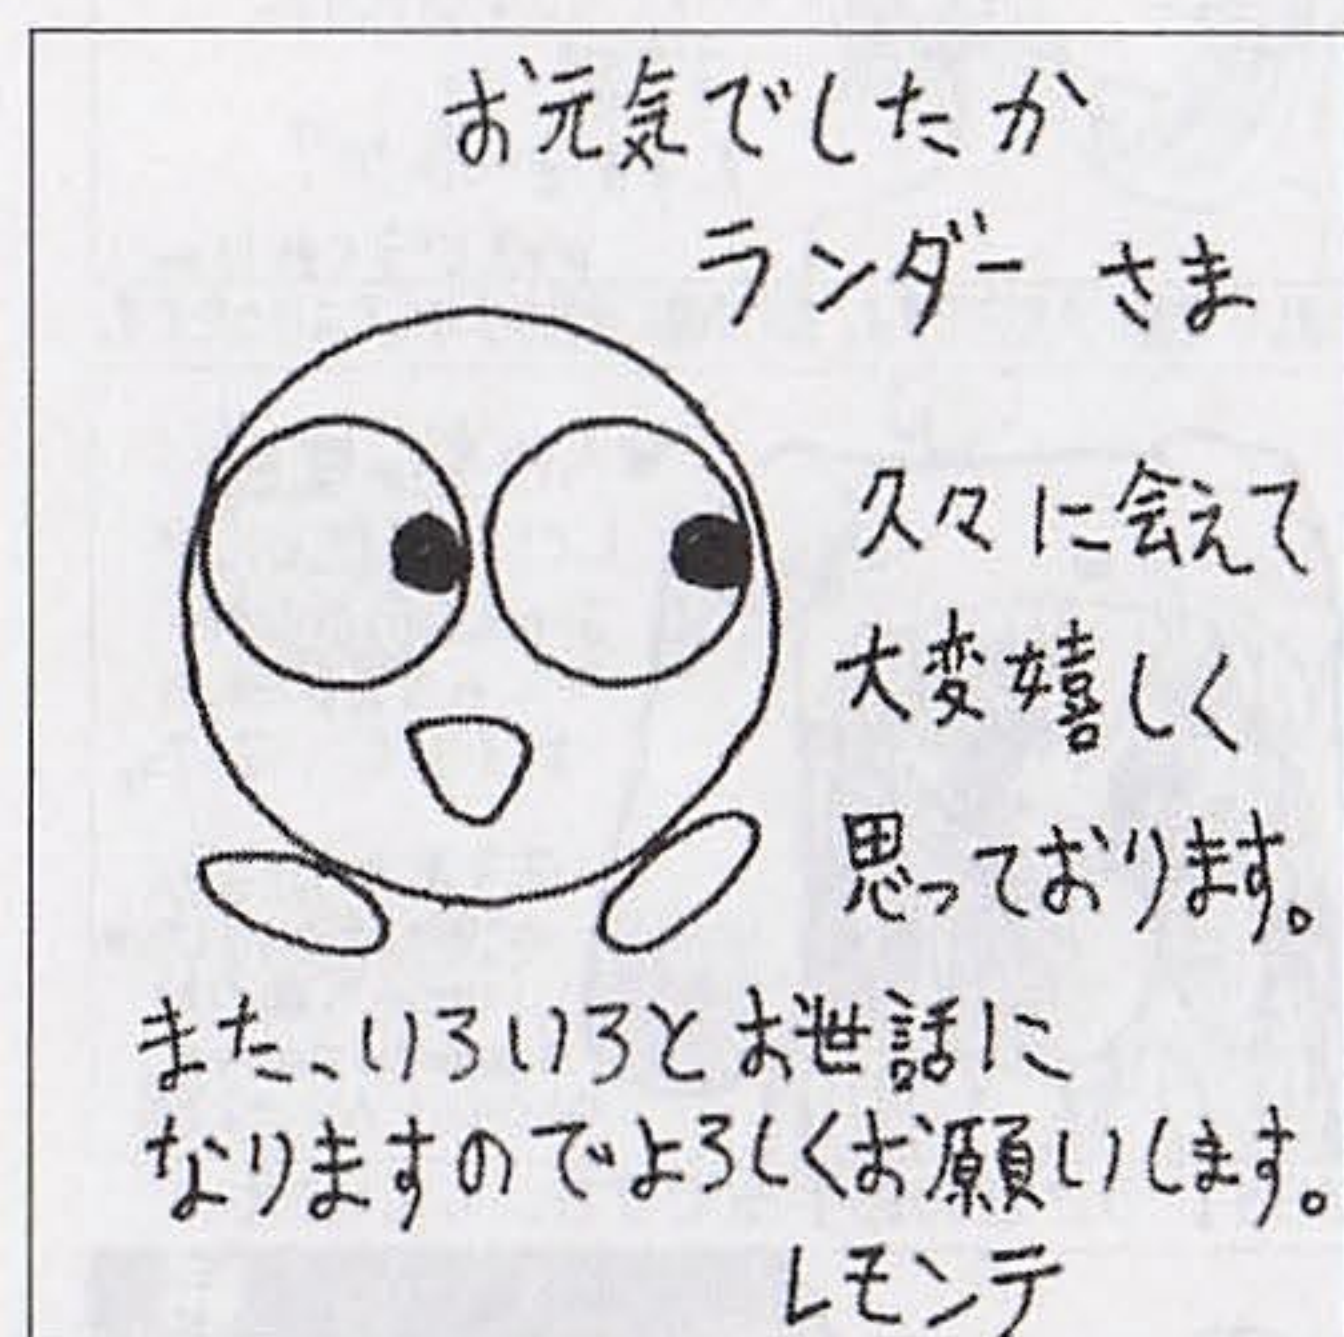 お元気でしたか
ランダーさま
久々に会えて
大変嬉しく
思っております。
また、いろいろとお世話に
なりますのでよろしくお願いします。
レモンテ